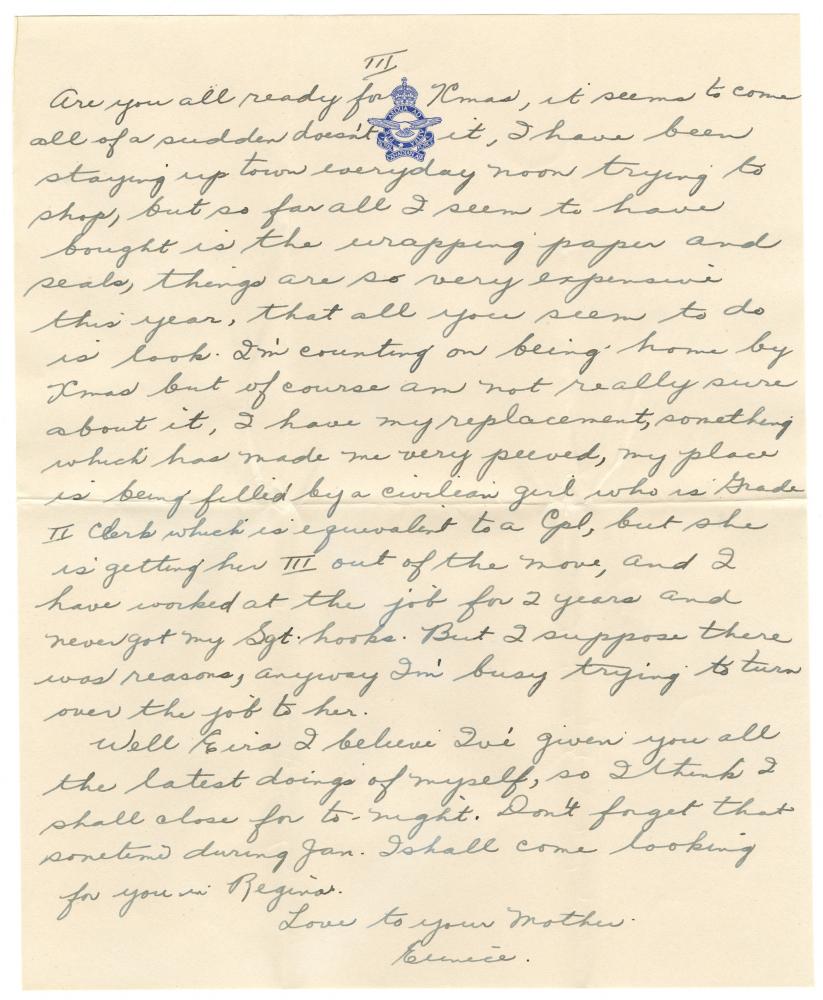 III
Are you all ready for Xmas, it seems to come
all of a sudden doesn't it, I have been
staying up town everyday noon trying to
shop, but so far all I seem to have
bought is the wrapping paper and
seals, things are so very expensive
this year, that all you seem to do
is look. I'm counting on being home by
Xmas but of course am not really sure
about it, I have my replacement, something
which has made me very peeved, my place
is being filled by a civiliean girl who is Grade
II Clerk which is equivalent to a Cpl, but she
is getting her III out of the move, and I
have worked at the job for 2 years and
never got my Sgt. hooks. But I suppose there
was reasons, anyway I'm busy trying to turn
over the job to her.
Well Eira I believe I've given you all
the latest doings of myself, so I think I
shall close for to-night. Don't forget that
sometime during Jan. I shall come looking
for you in Regina.
Love to your Mother.
Eunice.